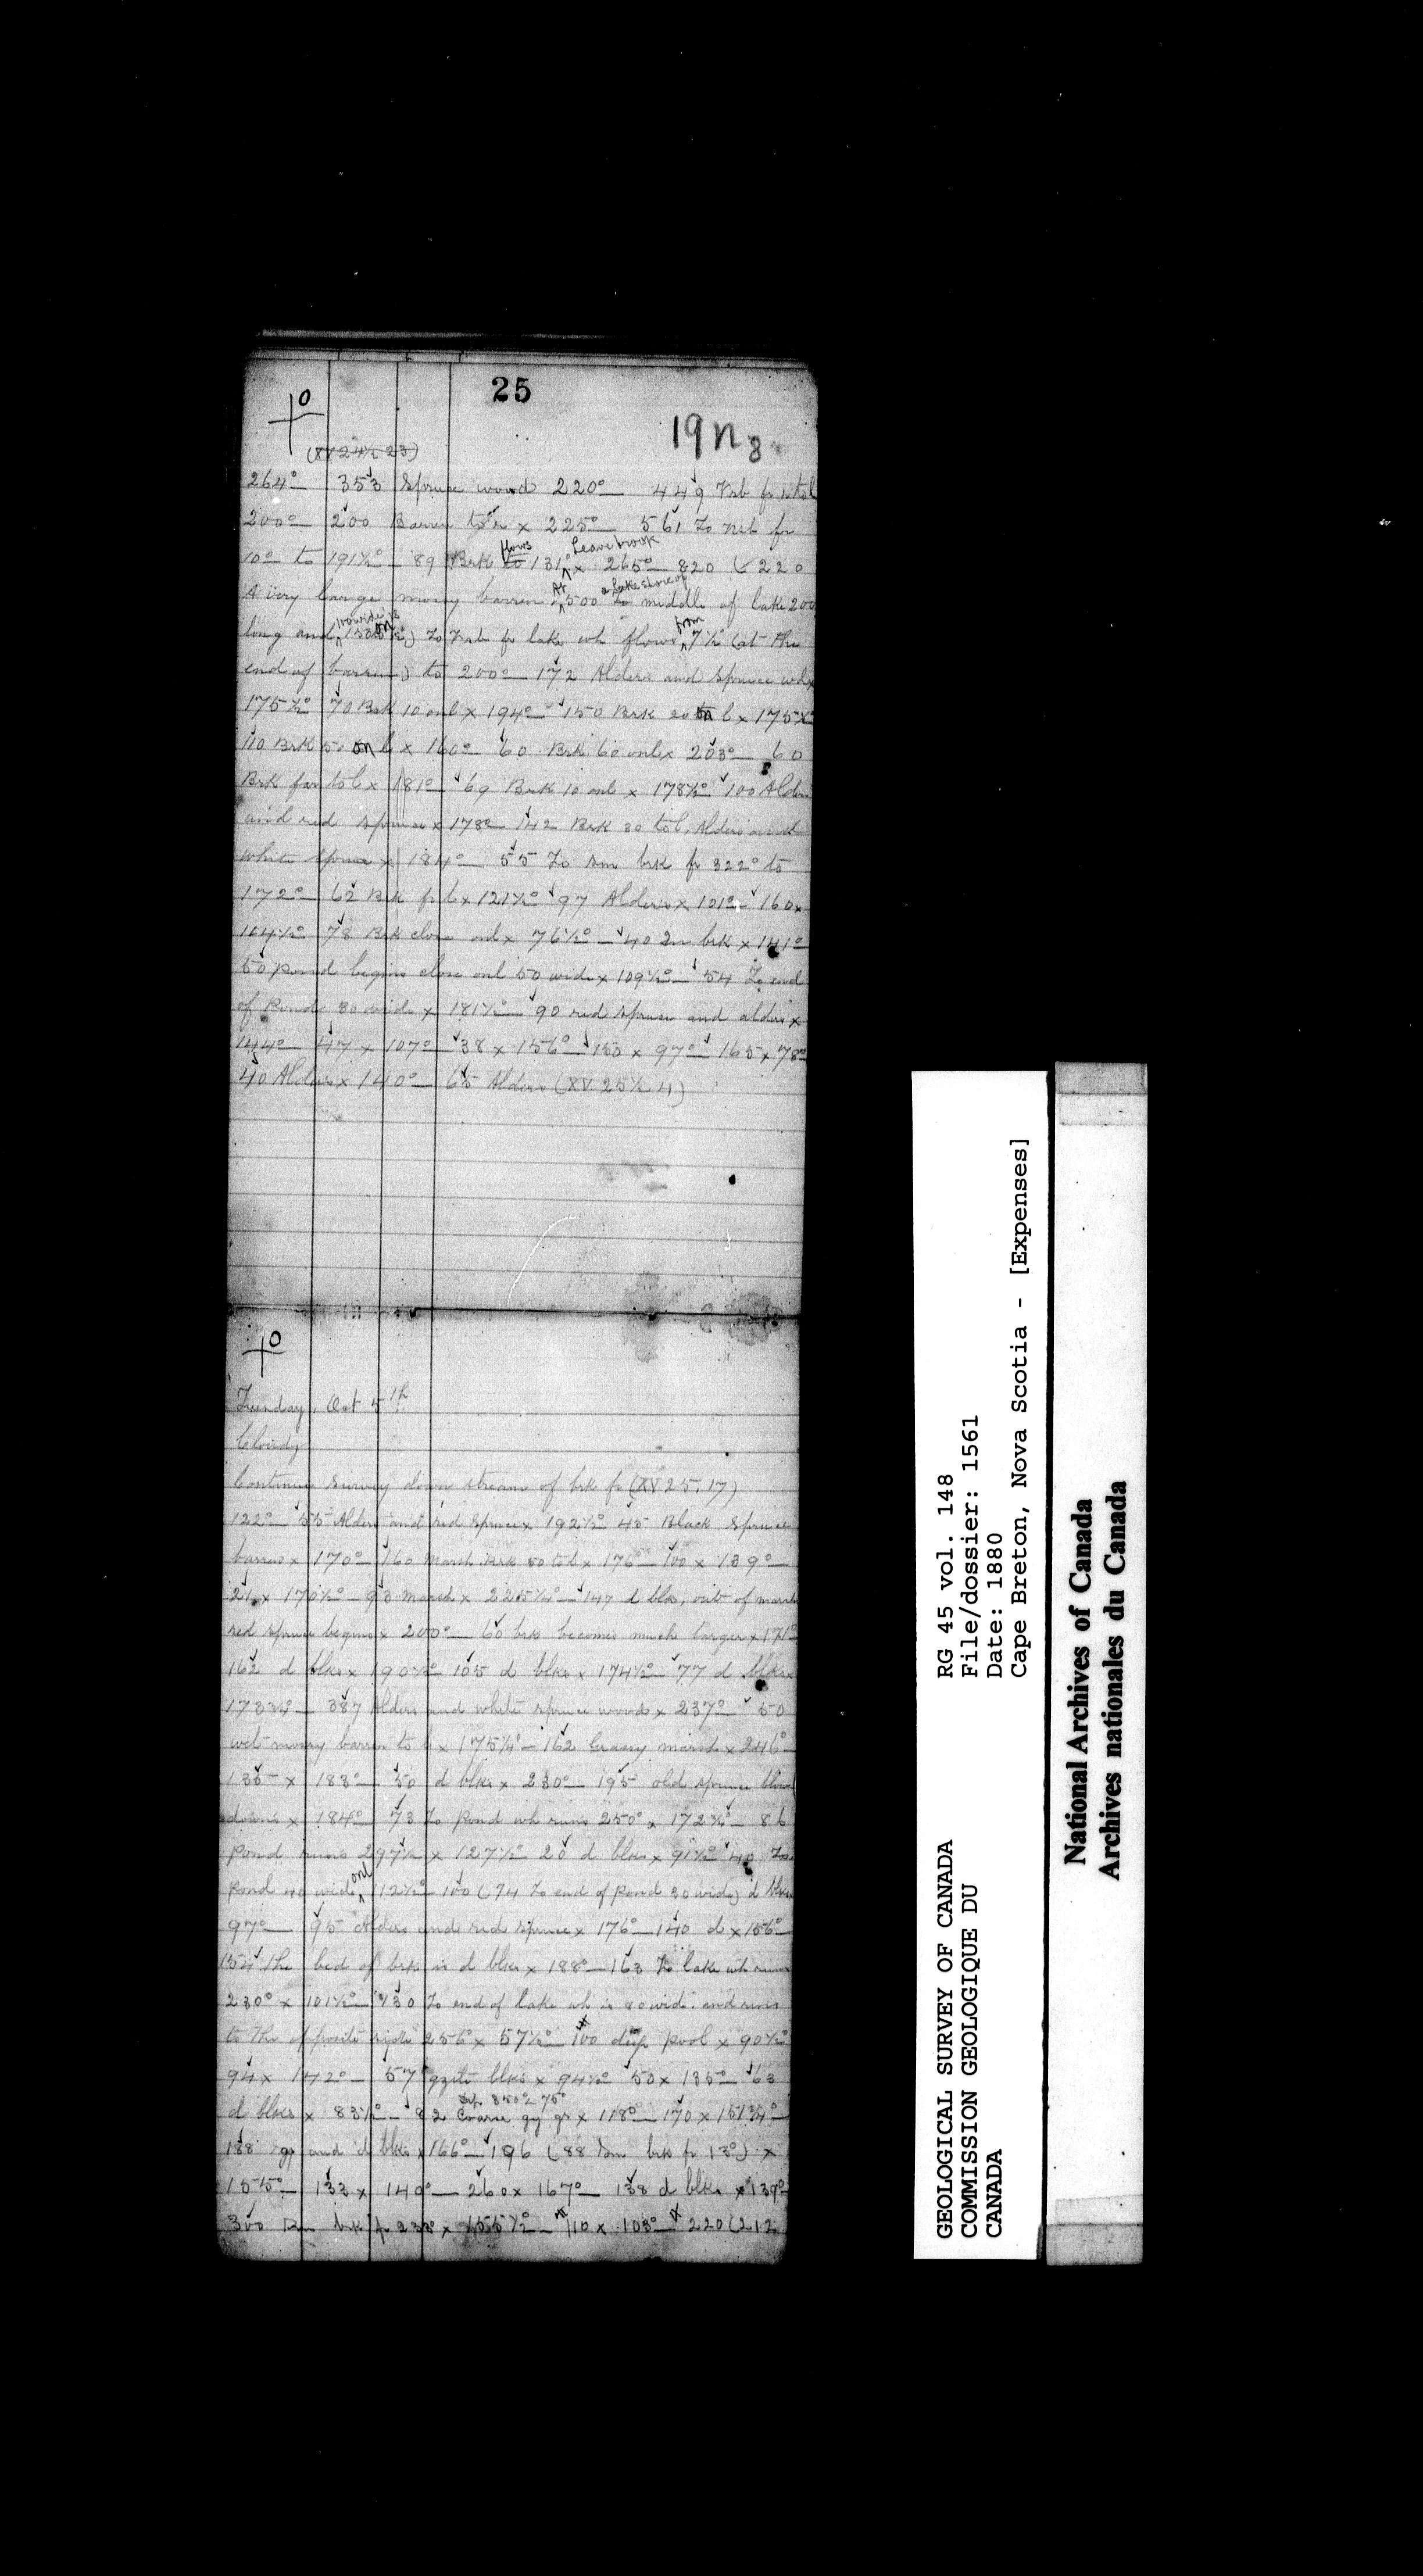 25
19 n 8
(XV 24½ 23)
264° 353 Spruce wood 220° — 449 fr r to l
200° — 200 Barren to r x 225° — 561 To fr
10° to 191½° — 89 Brk flows to 131° x Leave brook 265° — 820 (220
A very large mossy barren At 500 To a lake shore of middle of lake 200
long and 150 wide on r) To fr lake wh flows from 7½° (at the
end of barren) to 200° — 172 Alders and spruce wd x
175½° 70 Brk 10 on l x 194° — 150 Brk 20 on l x 175½°
110 Brk 50 on l x 160° — 60 Brk 60 on l x 203° — 60
Brk far to l x 181° — 69 Brk 10 on l x 178½° 100 Alders
and red spruce x 178° 142 Brk 30 to l, Alders and
white spruce x 184° — 55 To sm brk fr 322° to
172° — 62 Brk fr l x 121½° 97 Alders x 101° — 160 x
104½° 78 Brk close on l x 76½° — 40 brk x 141°
50 Pond begins close on l 50 wide x 109½° — 54 To end
of Pond 30 wide x 181½° — 90 red spruce and alders x
144° — 47 x 107° — 38 x 156° — 150 x 97° — 165 x 78°
40 Alders x 140° — 65 Alders (XV 25½ 4)
Tuesday, Oct 5th
Cloudy
Continue survey down stream of brk fr (XV 25, 17)
122° — 55 Alders and red spruce x 192½° 45 Black spruce
barren x 170° — 160 Marsh Brk 50 to l x 176° — 100 x 139° —
21 x 170½° — 93 Marsh x 225¼° — 147 d blks, out of marsh
red spruce begins x 200° — 60 brk becomes much larger x 171°
162 d blks x 190½° 105 d blks x 174½° 77 d blks x
173¾° — 387 Alders and white spruce woods x 237° — 50
wet mossy barren to x 175¼° — 162 Grassy marsh x 246° —
135 x 183° — 50 d blks x 230° — 195 old spruce blow
downs x 184° 73 To pond wh runs 250° x 172¾° — 86
Pond runs 297½ x 127½° 20 d blks x 91½° 40 To
Pond 40 wide on l 112½° — 100 (74 To end of Pond 30 wide) d blks
97° — 95 Alders and red spruce x 176° — 140 d x 156° —
154 the bed of brk is d blks x 188° — 163 To lake wh runs
230° x 101½° — 430 To end of lake wh is 80 wide and runs
to the opposite side 256° x 57½° — 100 deep pool x 90½°
94 x 142° — 57 qzite blks x 94½° 50 x 135° — 63
d blks x 83½° — 82 Coarse gy gr x 118° — 170 x 151¾° —
dip 350° L 75°
188 gr and d blks x 166° — 196 (88 sm brk fr 13°) x
155° — 133 x 149° — 260 x 167° — 138 d blks x 139° —
300 sm brk fr 233° x 155½° — 110 x 103° — 220 (212
GEOLOGICAL SURVEY OF CANADA
COMMISSION GEOLOGIQUE DU
CANADA
RG 45 vol. 148
File/dossier: 1561
Date: 1880
Cape Breton, Nova Scotia - [Expenses]
National Archives of Canada
Archives nationales du Canada